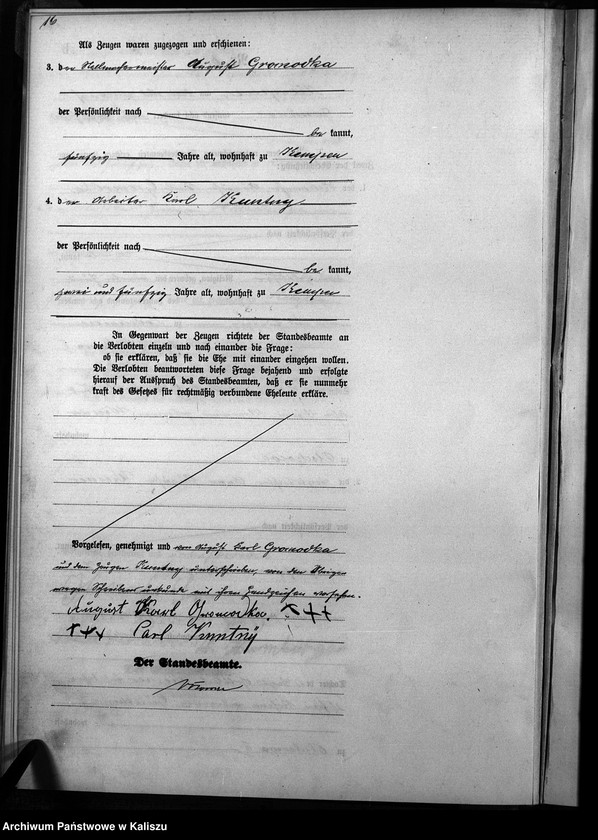 16
Als Zeugen waren zugezogen und erschienen:
3. der Stellmachermeister August Gromodka
der Persönlichkeit nach
be kannt,
fünfzig Jahre alt, wohnhaft zu Kempen
4. der Arbeiter Karl Kuntny
der Persönlichkeit nach
be kannt,
zwei und fünfzig Jahre alt, wohnhaft zu Kempen
In Gegenwart der Zeugen richtete der Standesbeamte an
die Verlobten einzeln und nach einander die Frage:
ob sie erklären, daß sie die Ehe mit einander eingehen wollen.
Die Verlobten beantworteten diese Frage bejahend und erfolgte
hierauf der Ausspruch des Standesbeamten, daß er sie nunmehr
kraft des Gesetzes für rechtmäßig verbundene Eheleute erkläre.
Vorgelesen, genehmigt und von August Carl Gromodka
und dem Zeugen Kuntny unterschrieben, von den Übrigen
wegen Schreibens unkunde mit ihren Handzeichen versehen.
August Karl Gromodka. +++
+++ Carl Kuntny
Der Standesbeamte.
Archiwum Państwowe w Kaliszu